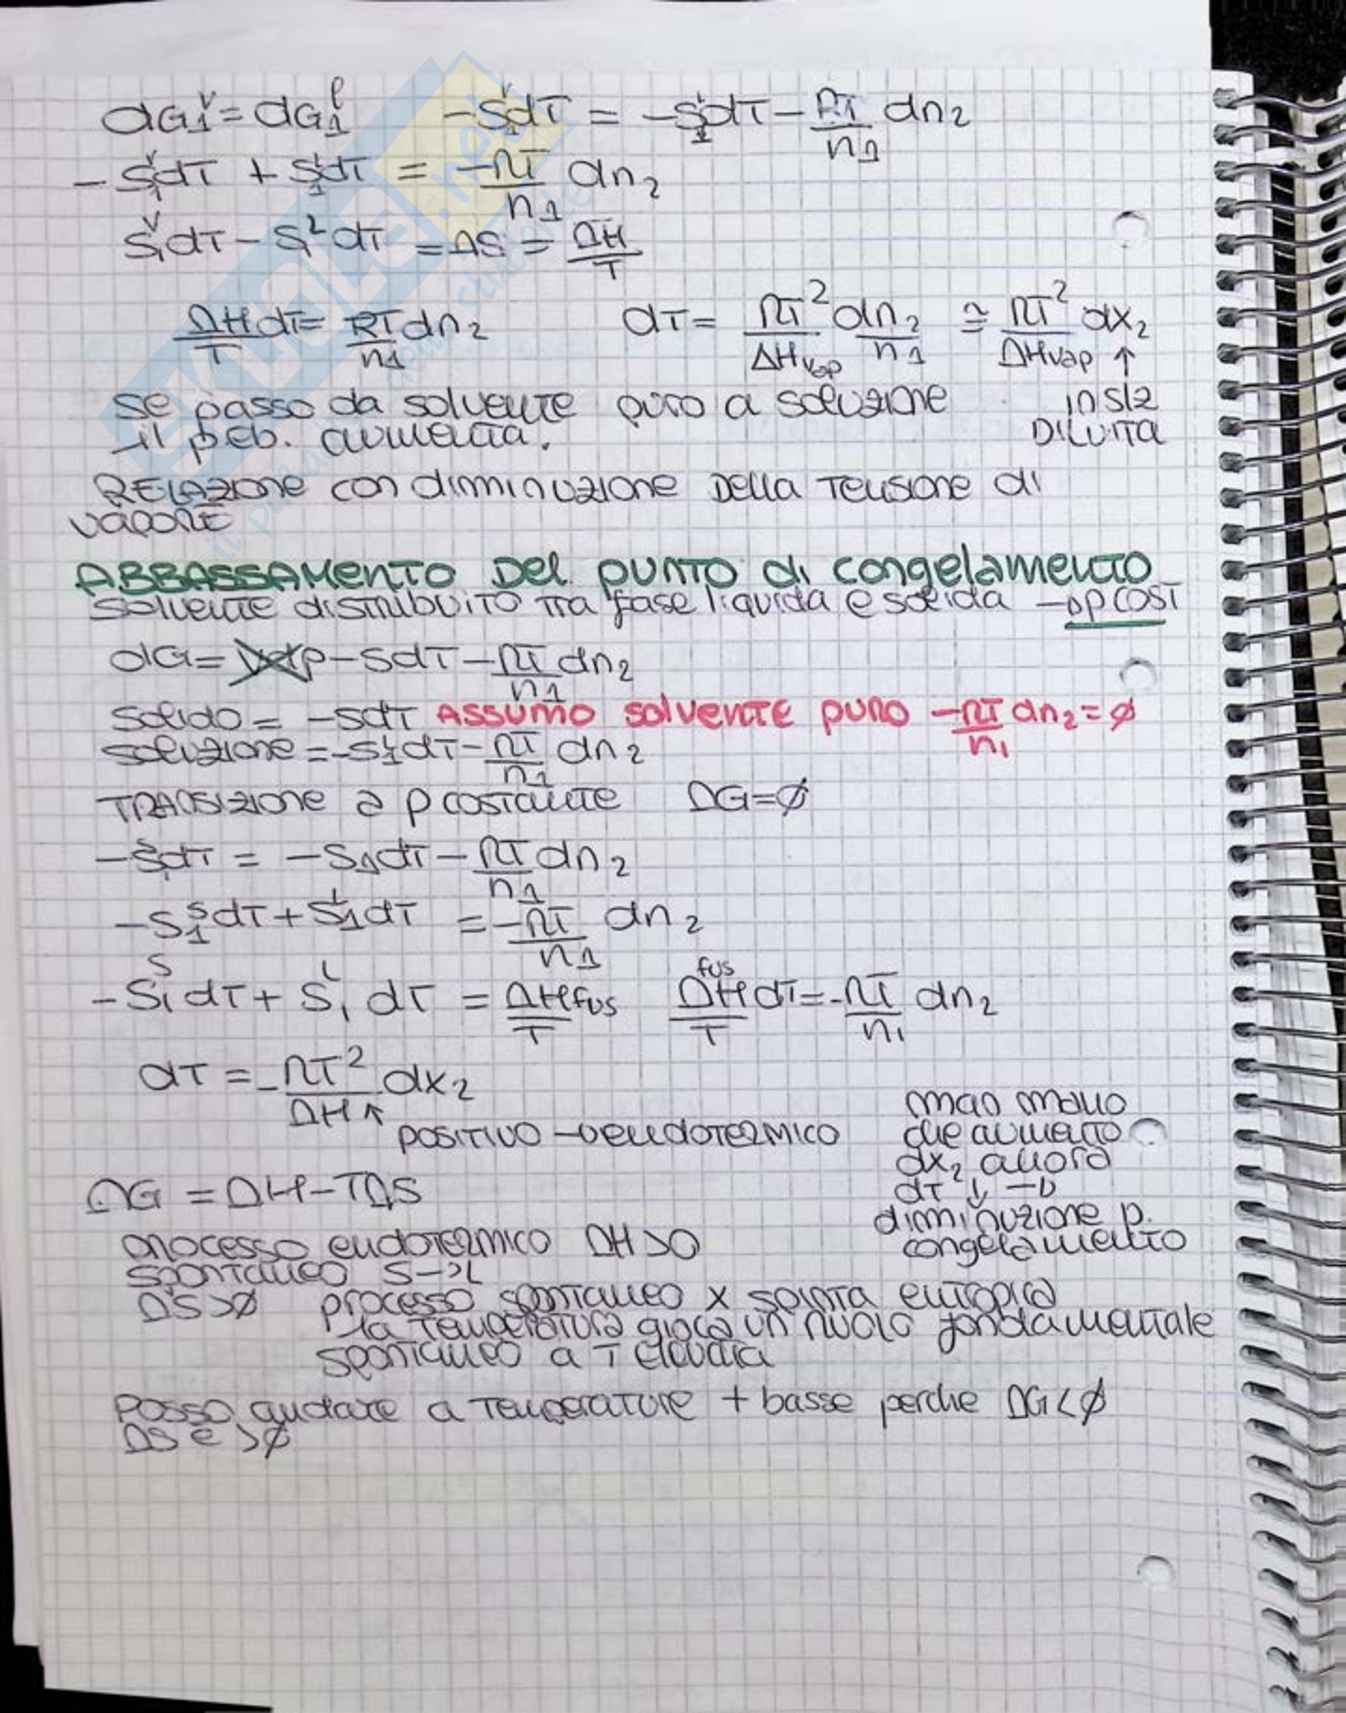 dG₁ᵛ = dG₁ˡ   -S₁ᵛdT = -S₁ˡdT - RT/n₁ dn₂
-S₁ᵛdT + S₁ˡdT = -RT/n₁ dn₂
S₁ᵛdT - S₁ˡdT = ΔS = ΔH/T
ΔH/T dT = RT/n₁ dn₂   dT = RT²/ΔHvap dn₂/n₁ ≅ RT²/ΔHvap dx₂ ↑
se passo da solvente puro a soluzione   in slz
il p.eb. aumenta.   DILUITA
RELAZIONE con diminuzione della tensione di
vapore
ABBASSAMENTO DEL PUNTO di congelamento
solvente distribuito tra fase liquida e solida → p cost
dG = Vdp - SdT - RT/n₁ dn₂
solido = -SdT ASSUMO solvente puro -RT/n₁ dn₂ = ∅
soluzione = -S₁ˡdT - RT/n₁ dn₂
TRANSIZIONE a p costante   ΔG = ∅
-S₁ˢdT = -S₁dT - RT/n₁ dn₂
-S₁ˢdT + S₁ᴸdT = -RT/n₁ dn₂
-S₁ˢdT + S₁ᴸdT = ΔHfus/T   ΔHᶠᵘˢ/T dT = -RT/n₁ dn₂
dT = -RT²/ΔH↑ dx₂
POSITIVO → ENDOTERMICO
man mano
che aumento
dx₂ allora
dT ↓ →
diminuzione p.
congelamento
ΔG = ΔH - TΔS
processo endotermico ΔH > 0
spontaneo S → L
ΔS > ∅   processo spontaneo x spinta entropica
la temperatura gioca un ruolo fondamentale
spontaneo a T elevata
Posso andare a temperature + basse perche ΔG < ∅
ΔS è > ∅